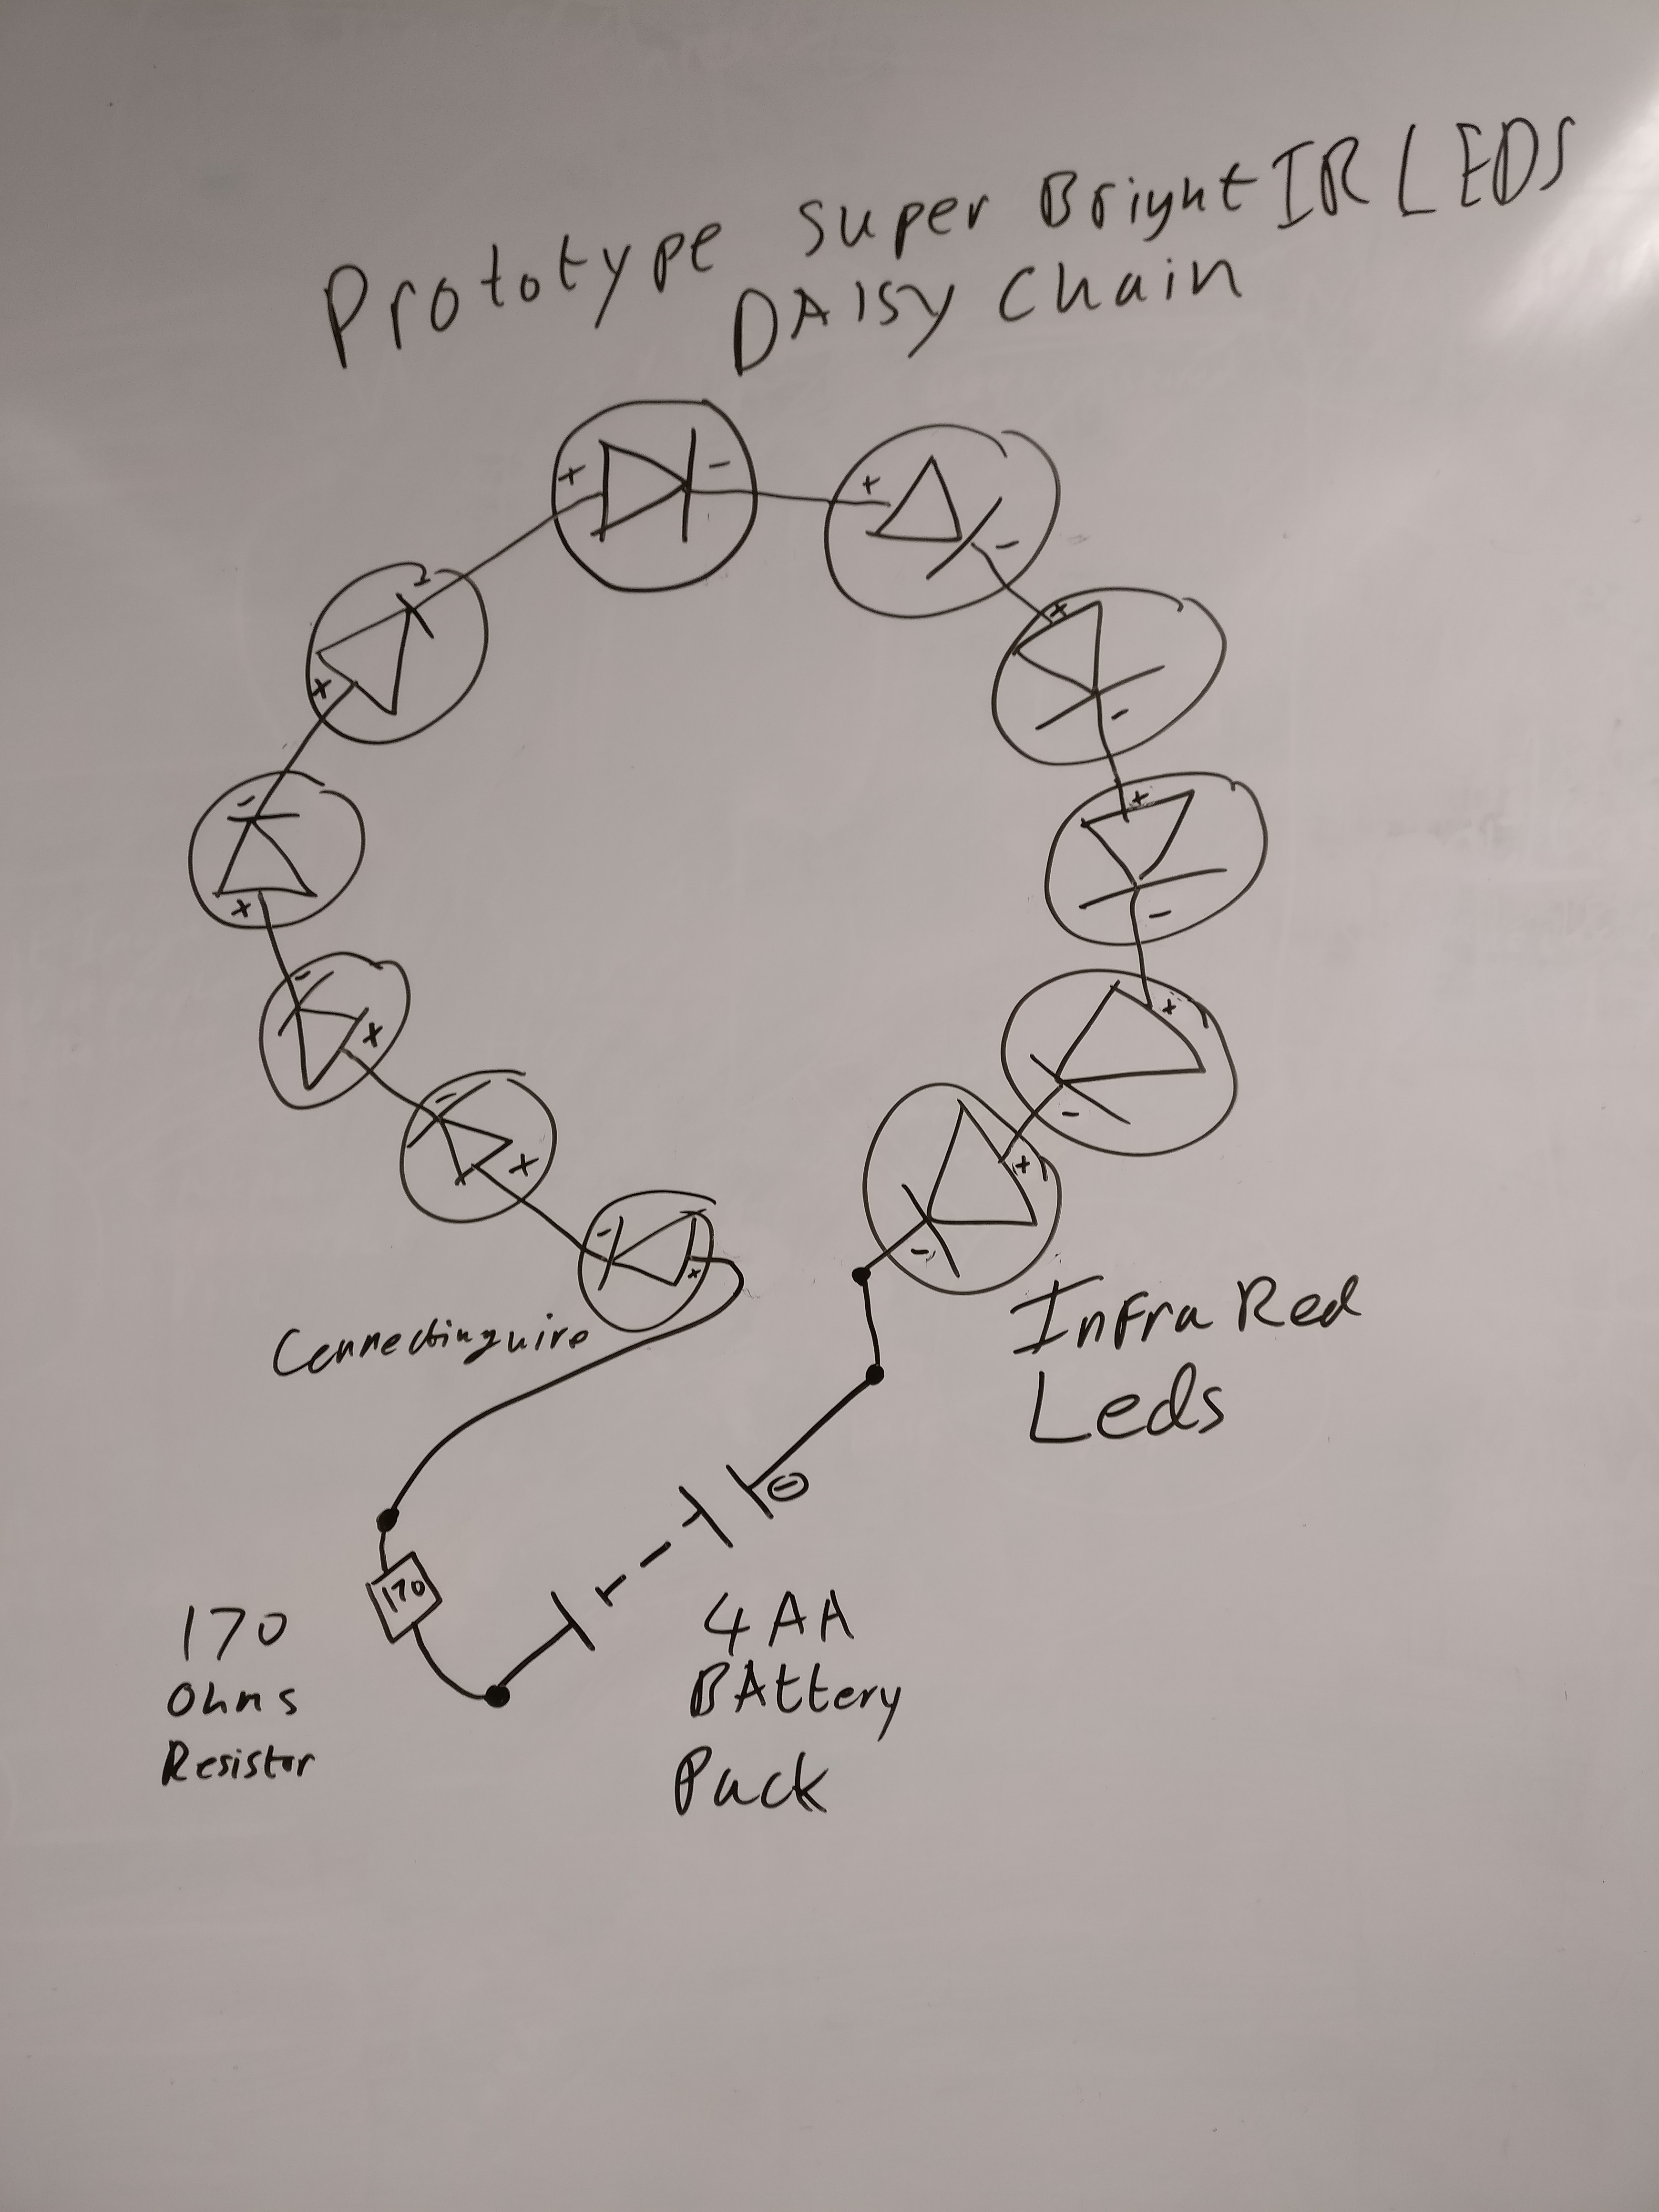 Prototype super Bright IR LEDS
DAISY Chain
Connecting wire
Infra Red
Leds
170
170
Ohms
Resistor
4 AA
BAttery
Pack